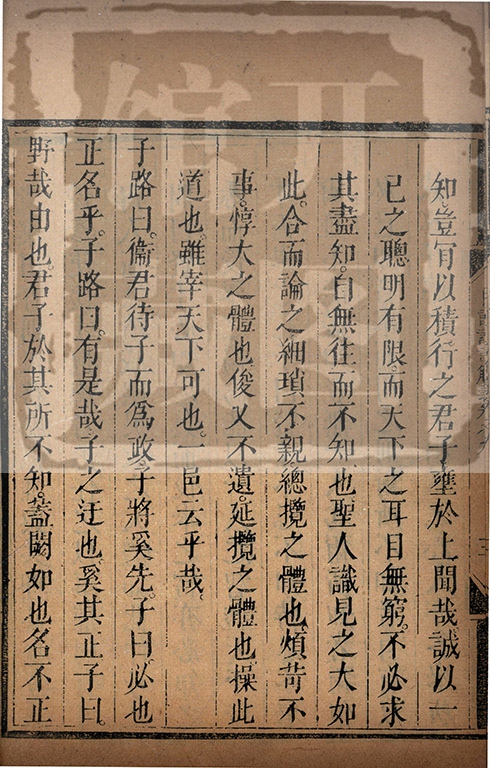 知。豈肯以積行之君子壅於上聞哉。誠以一
己之聰明有限。而天下之耳目無窮。不必求
其盡知。自無往而不知也。聖人識見之大如
此。合而論之。細瑣不親。總攬之體也。煩苛不
事。惇大之體也。俊乂不遺。延攬之體也。操此
道也。雖宰天下可也。一邑云乎哉。
子路曰。衞君待子而爲政。子將奚先。子曰。必也
正名乎。子路曰。有是哉。子之迂也。奚其正。子曰。
野哉由也。君子於其所不知。蓋闕如也。名不正